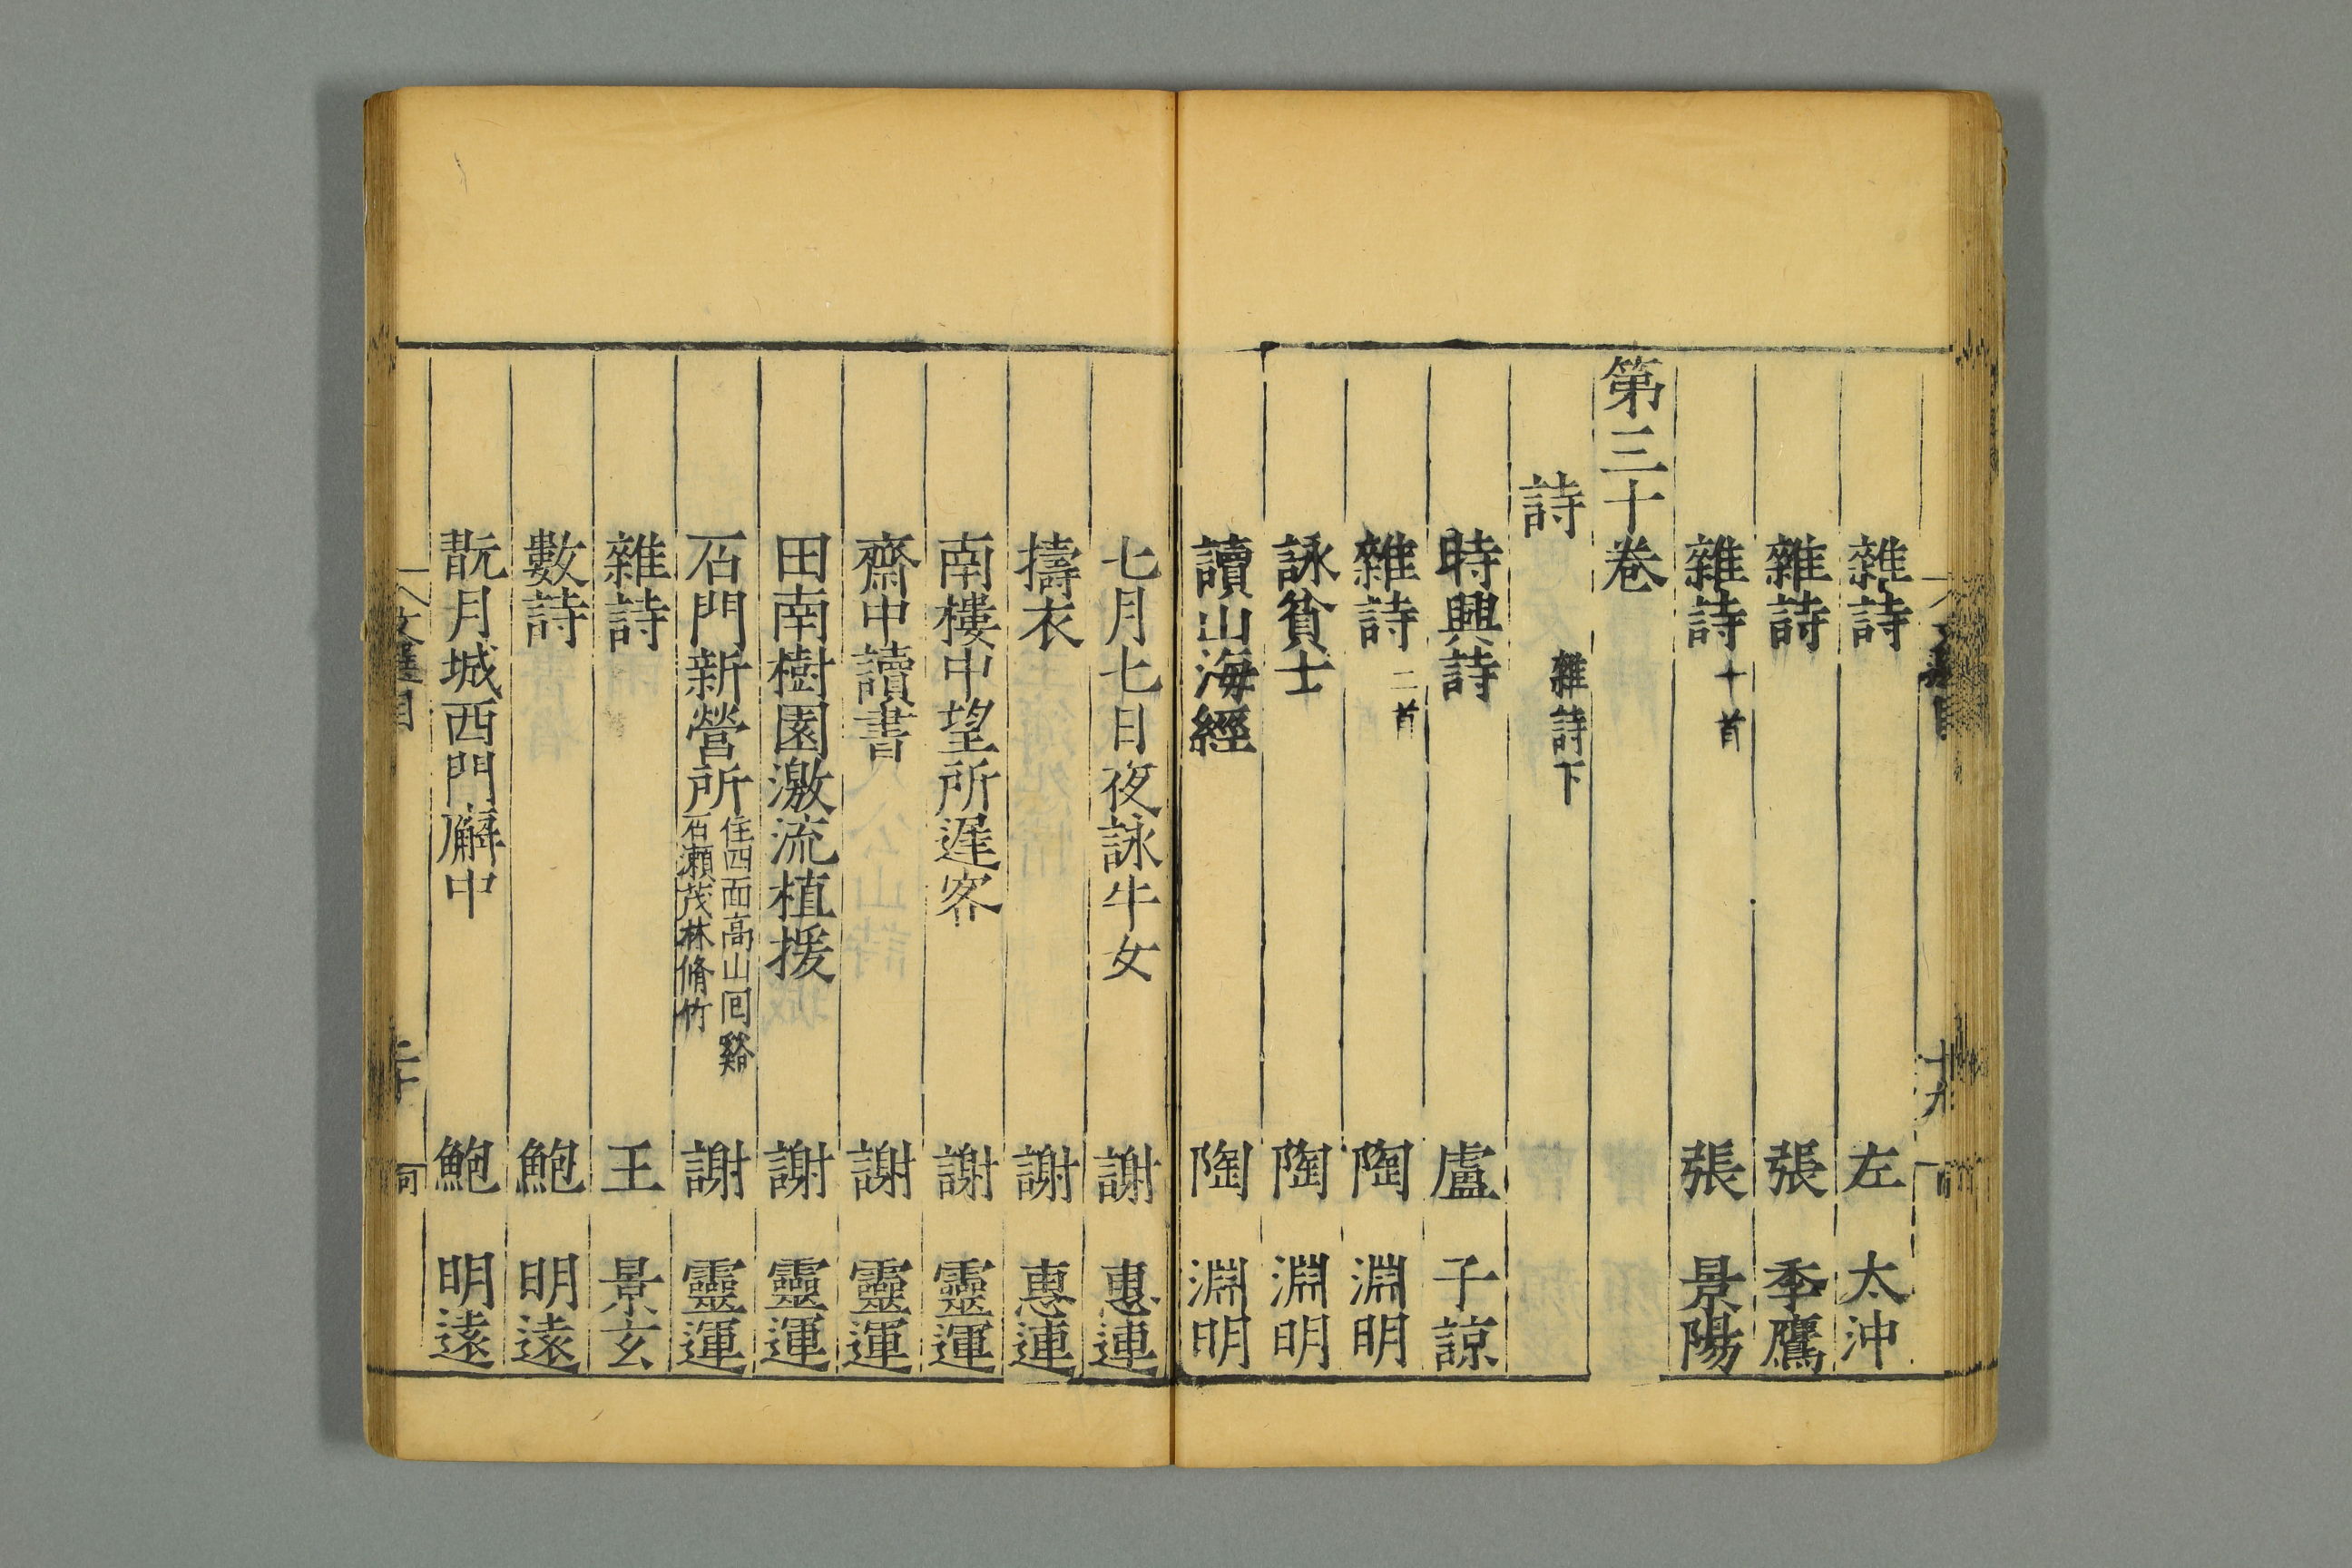 雜詩 左 太沖
雜詩 張 季鷹
雜詩十首 張 景陽
第三十卷
詩 雜詩下
時興詩 盧 子諒
雜詩二首 陶 淵明
詠貧士 陶 淵明
讀山海經 陶 淵明
七月七日夜詠牛女 謝 惠連
擣衣 謝 惠連
南樓中望所遲客 謝 靈運
齋中讀書 謝 靈運
田南樹園激流植援 謝 靈運
石門新營所住四面高山回谿石瀨茂林脩竹 謝 靈運
雜詩 王 景玄
數詩 鮑 明遠
翫月城西門廨中 鮑 明遠
文選目 二十